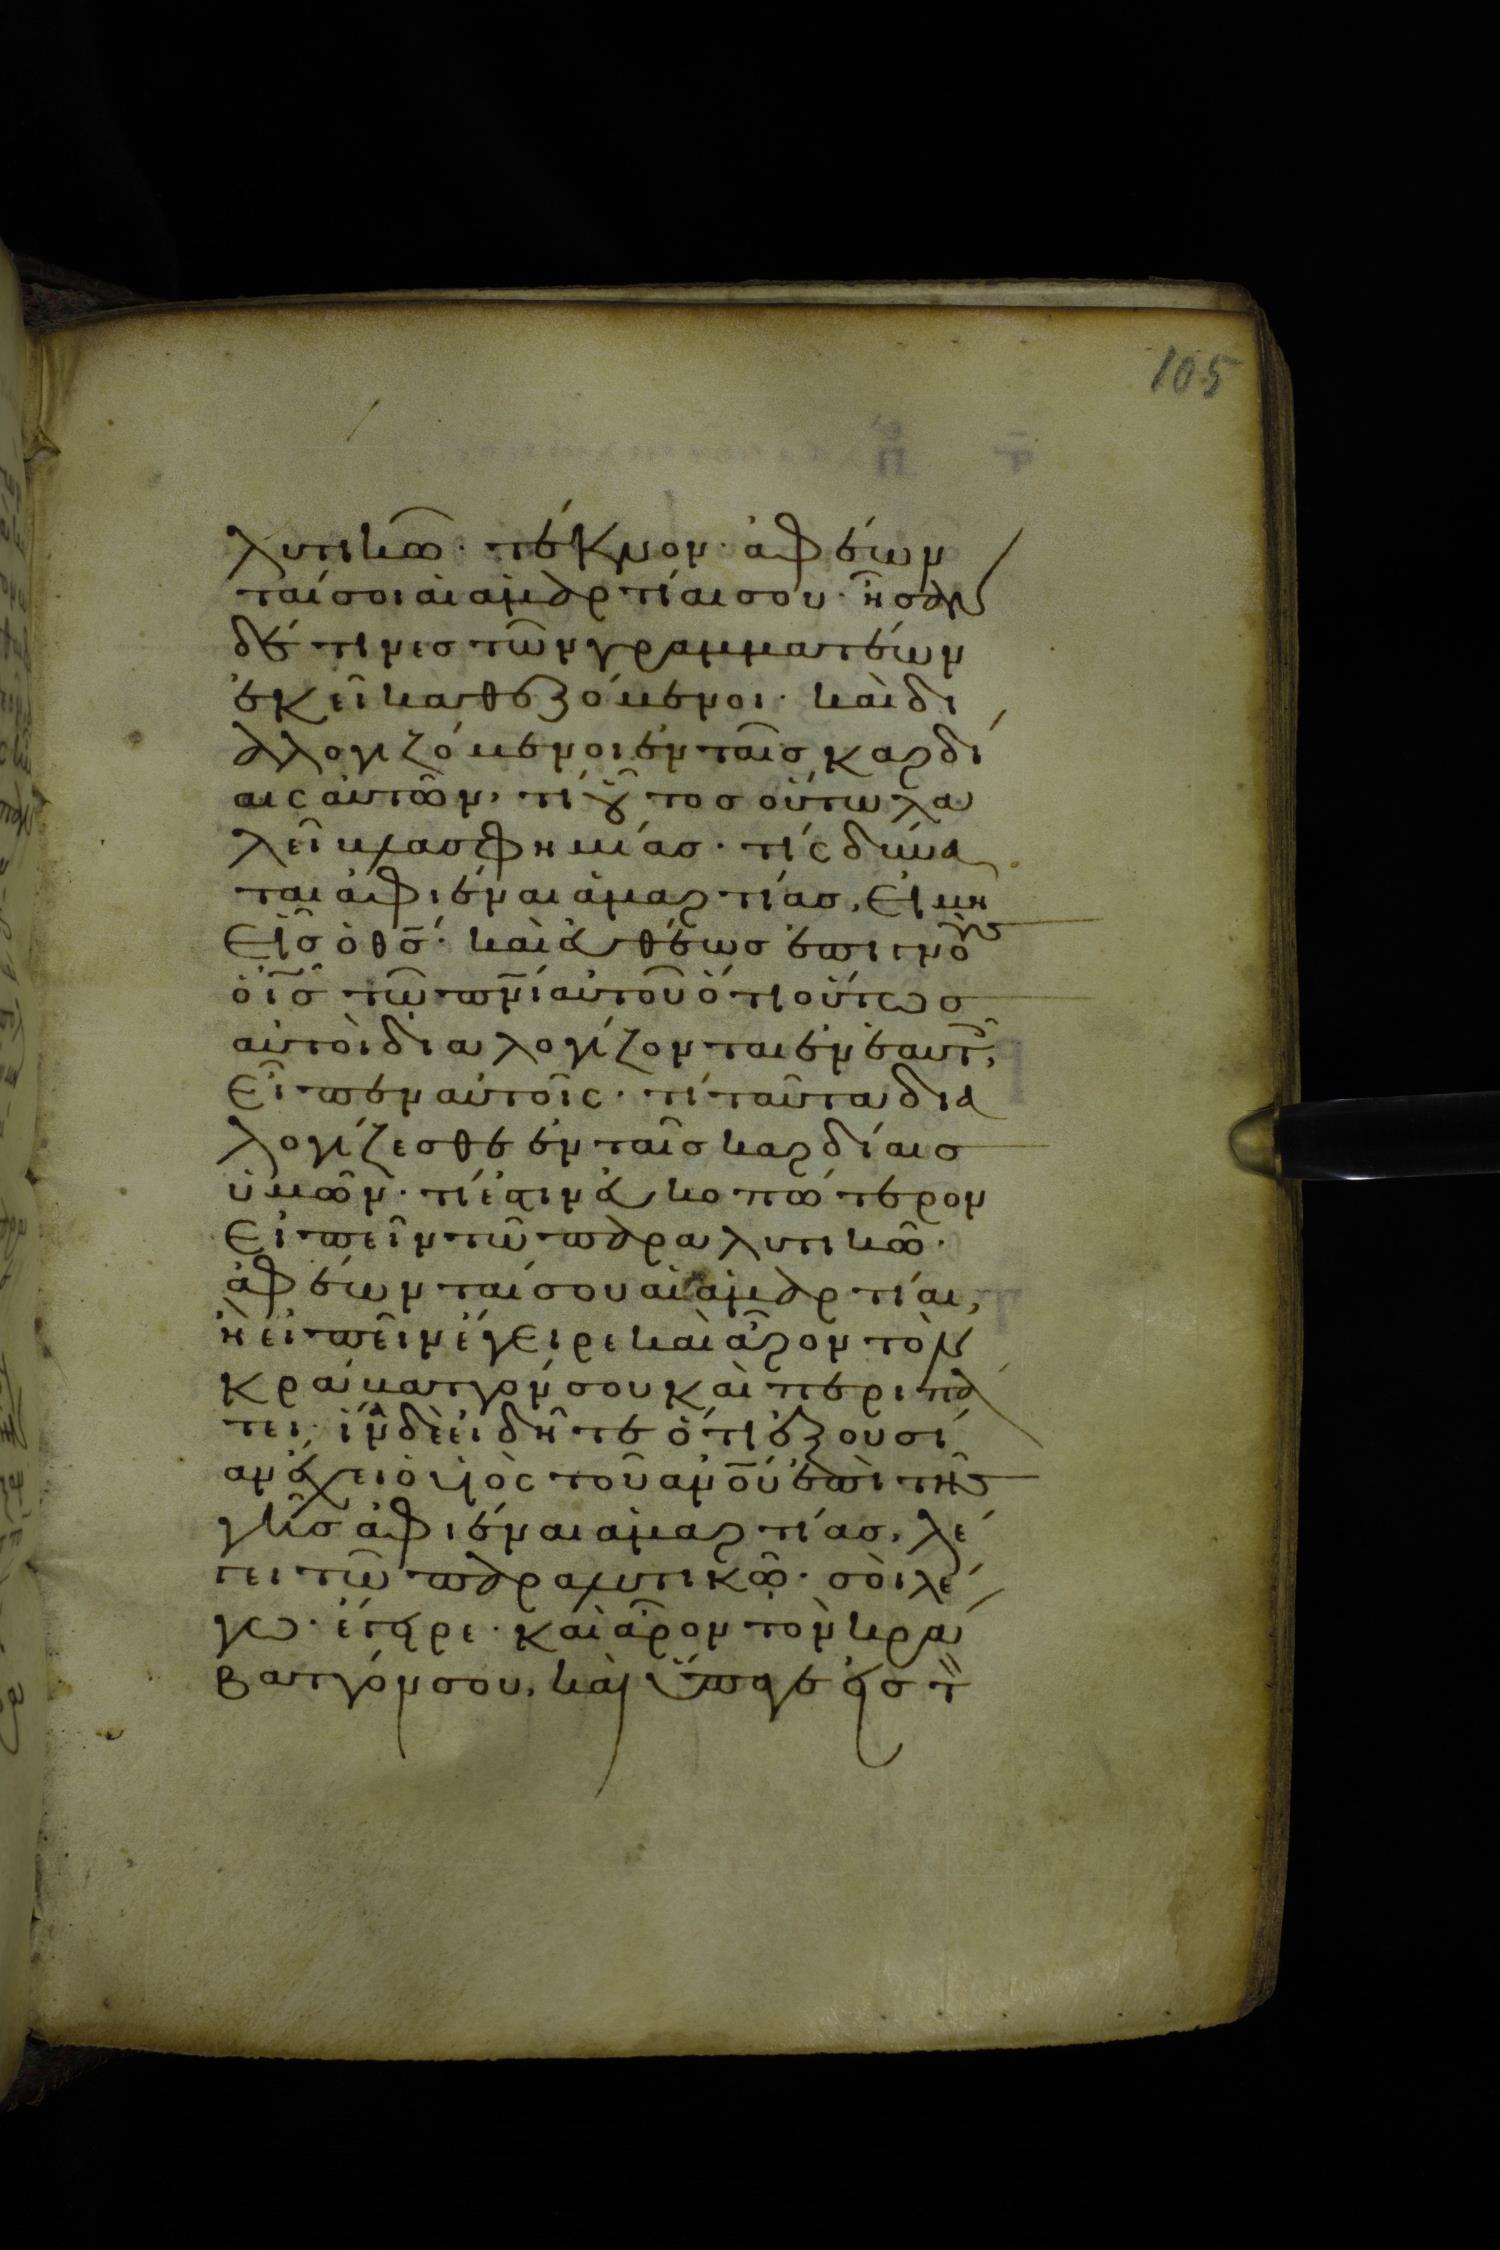 105
λυτικῶ· τέκνον· ἀφέων
ταί σοι αἱ ἁμαρτίαι σου· ἦσαν
δέ τινες τῶν γραμματέων
ἐκεῖ καθεζόμενοι· καὶ δι
αλογιζόμενοι ἐν ταῖς καρδί
αις αὐτῶν, τί οὗτος οὕτω λα
λεῖ βλασφημίας· τίς δύνα
ται ἀφιέναι ἁμαρτίας, εἰ μὴ
εἷς ὁ θς̅· καὶ εὐθέως ἐπιγνοὺς
ὁ ις̅ τῶ πνι̅ αὐτοῦ ὅτι οὕτως
αὐτοὶ διαλογίζονται ἐν ἑαυτ͂,
εἶπεν αὐτοῖς· τί ταῦτα δια
λογίζεσθε ἐν ταῖς καρδίαις
ὑμῶν· τί ἐστιν εὐκοπώτερον
εἰπεῖν τῶ παραλυτικῶ·
ἀφέωνταί σου αἱ ἁμαρτίαι,
ἢ εἰπεῖν ἔγειρε καὶ ἆρον τὸν
κράβαττόν σου καὶ περιπά
τει, ἵνα δὲ εἰδῆτε ὅτι ἐξουσί
αν ἔχει ὁ υἱὸς τοῦ ανου̅ ἐπὶ τῆς
γῆς ἀφιέναι ἁμαρτίας, λέ
γει τῶ παραλυτικῶ· σοὶ λέ
γω· ἔγειρε· καὶ ἆρον τὸν κρά
βαττόν σου, καὶ ὕπαγε εἰς τ